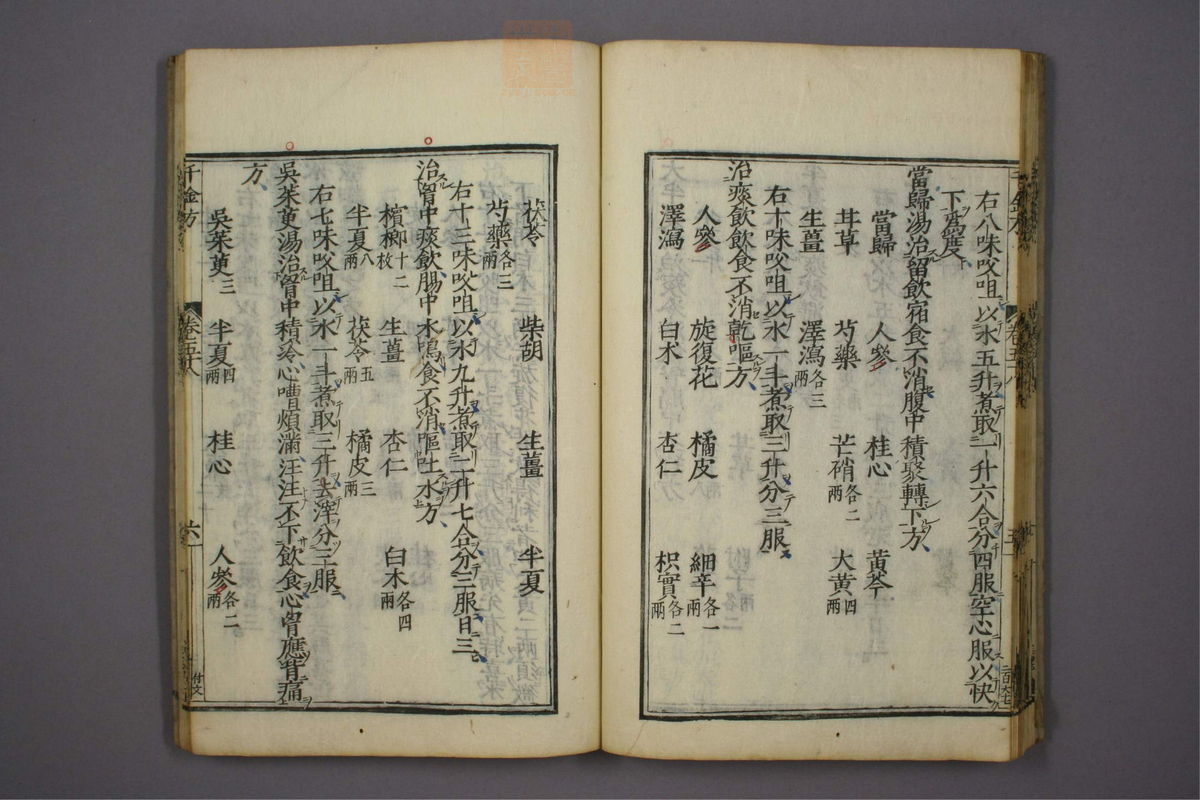 右八味㕮咀以水五升煮取一升六合分四服空心服以快
下爲度
當歸湯治留飮宿食不消腹中積聚轉下方
當歸 人參 桂心 黃芩
甘草 芍藥 芒硝各二兩 大黃四兩
生薑 澤瀉各三兩
右十味㕮咀以水一斗煮取三升分三服
治痰飮飮食不消乾嘔方
人參 旋復花 橘皮 細辛各一兩
澤瀉 白朮 杏仁 枳實各二兩
茯苓 柴胡 生薑 半夏
芍藥各三兩
右十三味㕮咀以水九升煮取二升七合分三服日三
治胷中痰飮腸中水鳴食不消嘔吐水方
檳榔十二枚 生薑 杏仁 白朮各四兩
半夏八兩 茯苓五兩 橘皮三兩
右七味㕮咀以水一斗煮取三升去滓分三服
吳茱萸湯治胷中積冷心嘈煩滿汪汪不下飮食心胷應背痛
方
吳茱萸三 半夏四兩 桂心 人參各二兩
千金方 卷五十八 六